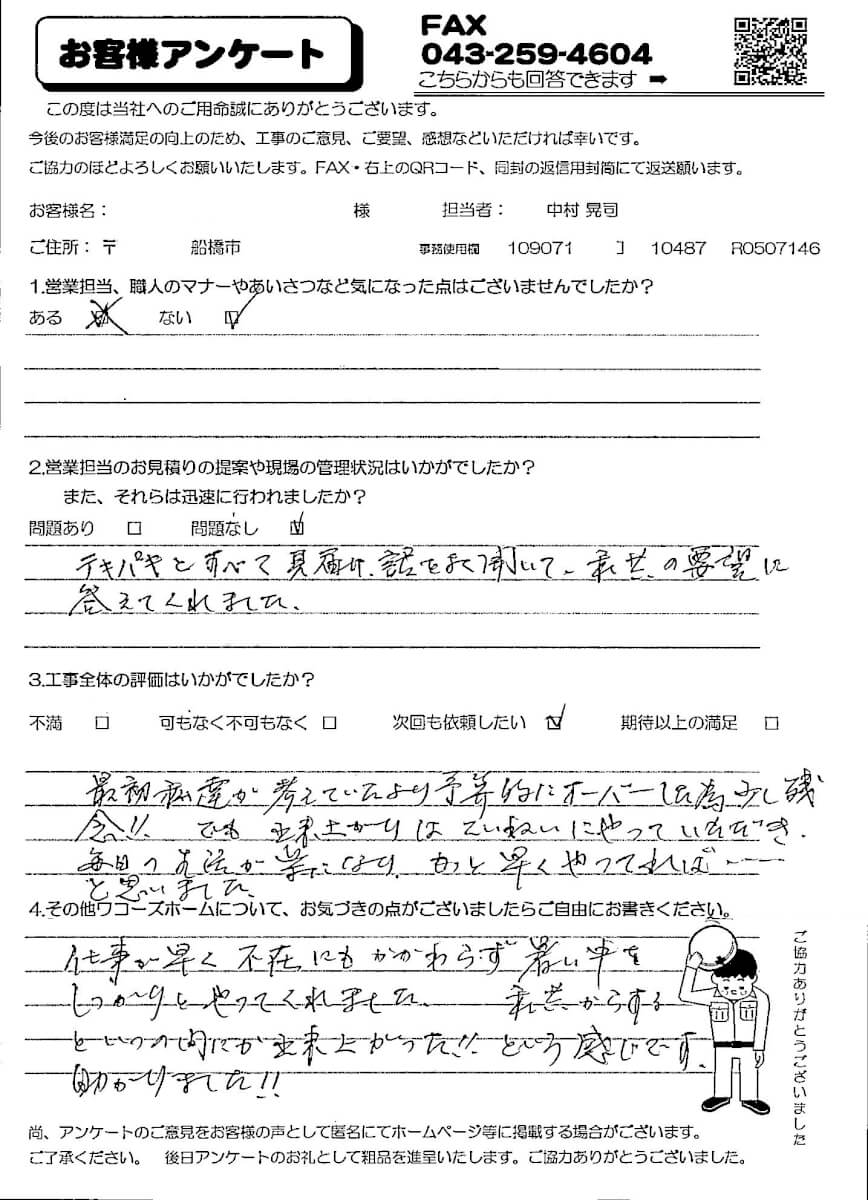 お客様アンケート
FAX
043-259-4604
こちらからも回答できます ➡
この度は当社へのご用命誠にありがとうございます。
今後のお客様満足の向上のため、工事のご意見、ご要望、感想などいただければ幸いです。
ご協力のほどよろしくお願いいたします。FAX・右上のQRコード、同封の返信用封筒にて返送願います。
お客様名： 様 担当者： 中村 晃司
ご住所：〒 船橋市 事務使用欄 109071 J 10487 R0507146
1.営業担当、職人のマナーやあいさつなど気になった点はございませんでしたか？
ある □ ない □
2.営業担当のお見積りの提案や現場の管理状況はいかがでしたか？
また、それらは迅速に行われましたか？
問題あり □ 問題なし □
テキパキとすべて見届け、話をよく聞いて、私共の要望に
答えてくれました。
3.工事全体の評価はいかがでしたか？
不満 □ 可もなく不可もなく □ 次回も依頼したい □ 期待以上の満足 □
最初私達が考えていたより予算的にオーバーした為少し残
念!! でも出来上がりはていねいにやっていただき、
毎日の生活が楽になり、もっと早くやってれば……
と思いました。
4.その他ワコーズホームについて、お気づきの点がございましたらご自由にお書きください。
仕事が早く不在にもかかわらず暑い中を
しっかりとやってくれました。 私共からする
といつの間にか出来上がった!!という感じです。
助かりました!!
ご協力ありがとうございました
尚、アンケートのご意見をお客様の声として匿名にてホームページ等に掲載する場合がございます。
ご了承ください。 後日アンケートのお礼として粗品を進呈いたします。ご協力ありがとうございました。